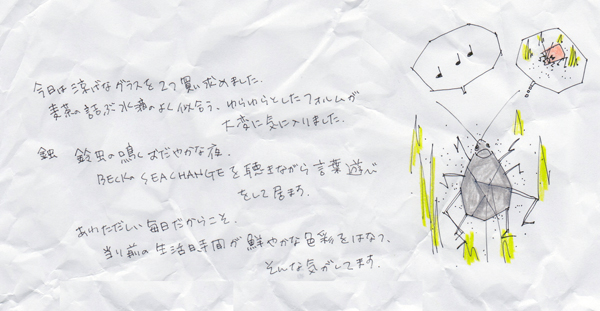 今日は涼しげなグラスを2つ買い求めました.
麦茶の
水滴のよく似合う、ゆらゆらとしたフォルムが
大変に気に入りました.
鈴虫の鳴くおだやかな夜.
BECKの SEACHANGEを聴きながら言葉遊び
をして居ます.
あわただしい毎日だからこそ.
当り前の生活時間が鮮やかな色彩をはなつ、
そんな気がしてます.